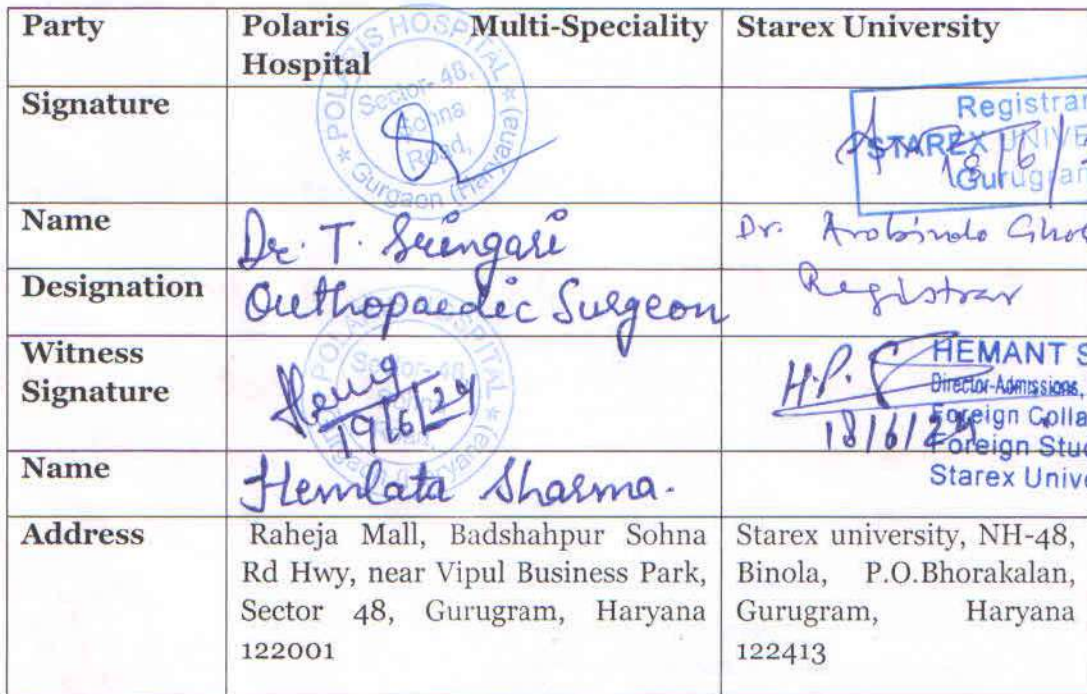 Party Polaris Multi-Speciality Starex University
Hospital
POLARIS HOSPITAL
Sector-48,
Sohna
Road,
Gurgaon (Haryana)
Signature
Registrar
STAREX UNIVE
18/6/
Gurugram
Name Dr. T. Sringari Dr. Arobindo Ghos
Designation Outhopaedic Surgeon Registrar
Witness
Signature
19/6/24
H.P.
18/6/24
HEMANT S
Director-Admissions,
Foreign Colla
Foreign Stud
Starex Unive
Name Hemlata Sharma.
Address Raheja Mall, Badshahpur Sohna
Rd Hwy, near Vipul Business Park,
Sector 48, Gurugram, Haryana
122001
Starex university, NH-48,
Binola, P.O.Bhorakalan,
Gurugram, Haryana
122413